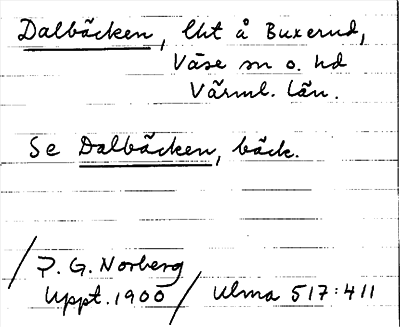 Dalbäcken, lht å Buxerud,
Väse sn o. hd
Värml. län.
Se Dalbäcken, bäck.
P. G. Norberg
Uppt. 1900
Ulma 517:411